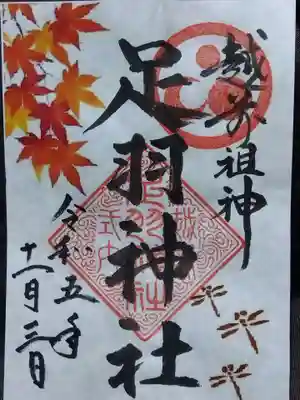 越前祖神
足羽神社
令和五年
十一月三日